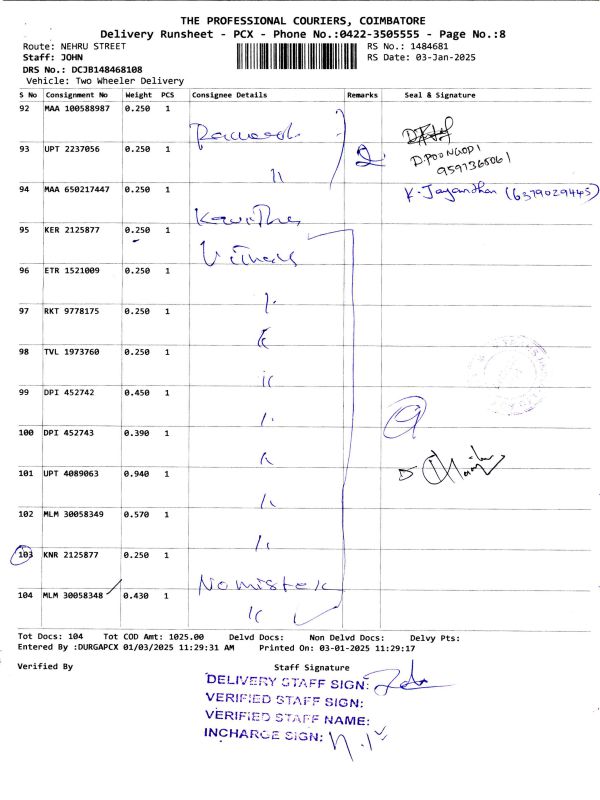 THE PROFESSIONAL COURIERS, COIMBATORE
Delivery Runsheet - PCX - Phone No.:0422-3505555 - Page No.:8
Route: NEHRU STREET RS No.: 1484681
Staff: JOHN RS Date: 03-Jan-2025
DRS No.: DCJB148468108
Vehicle: Two Wheeler Delivery
S No Consignment No Weight PCS Consignee Details Remarks Seal & Signature
92 MAA 100588987 0.250 1
93 UPT 2237056 0.250 1
D.POONGODI
9597365061
94 MAA 650217447 0.250 1
K. Jayandhan (6379029445)
Kavitha
95 KER 2125877 0.250 1
96 ETR 1521009 0.250 1
97 RKT 9778175 0.250 1
98 TVL 1973760 0.250 1
99 DPI 452742 0.450 1
100 DPI 452743 0.390 1
101 UPT 4089063 0.940 1
102 MLM 30058349 0.570 1
103 KNR 2125877 0.250 1
Nomister
104 MLM 30058348 0.430 1
Tot Docs: 104 Tot COD Amt: 1025.00 Delvd Docs: Non Delvd Docs: Delvy Pts:
Entered By :DURGAPCX 01/03/2025 11:29:31 AM Printed On: 03-01-2025 11:29:17
Verified By Staff Signature
DELIVERY STAFF SIGN:
VERIFIED STAFF SIGN:
VERIFIED STAFF NAME:
INCHARGE SIGN: